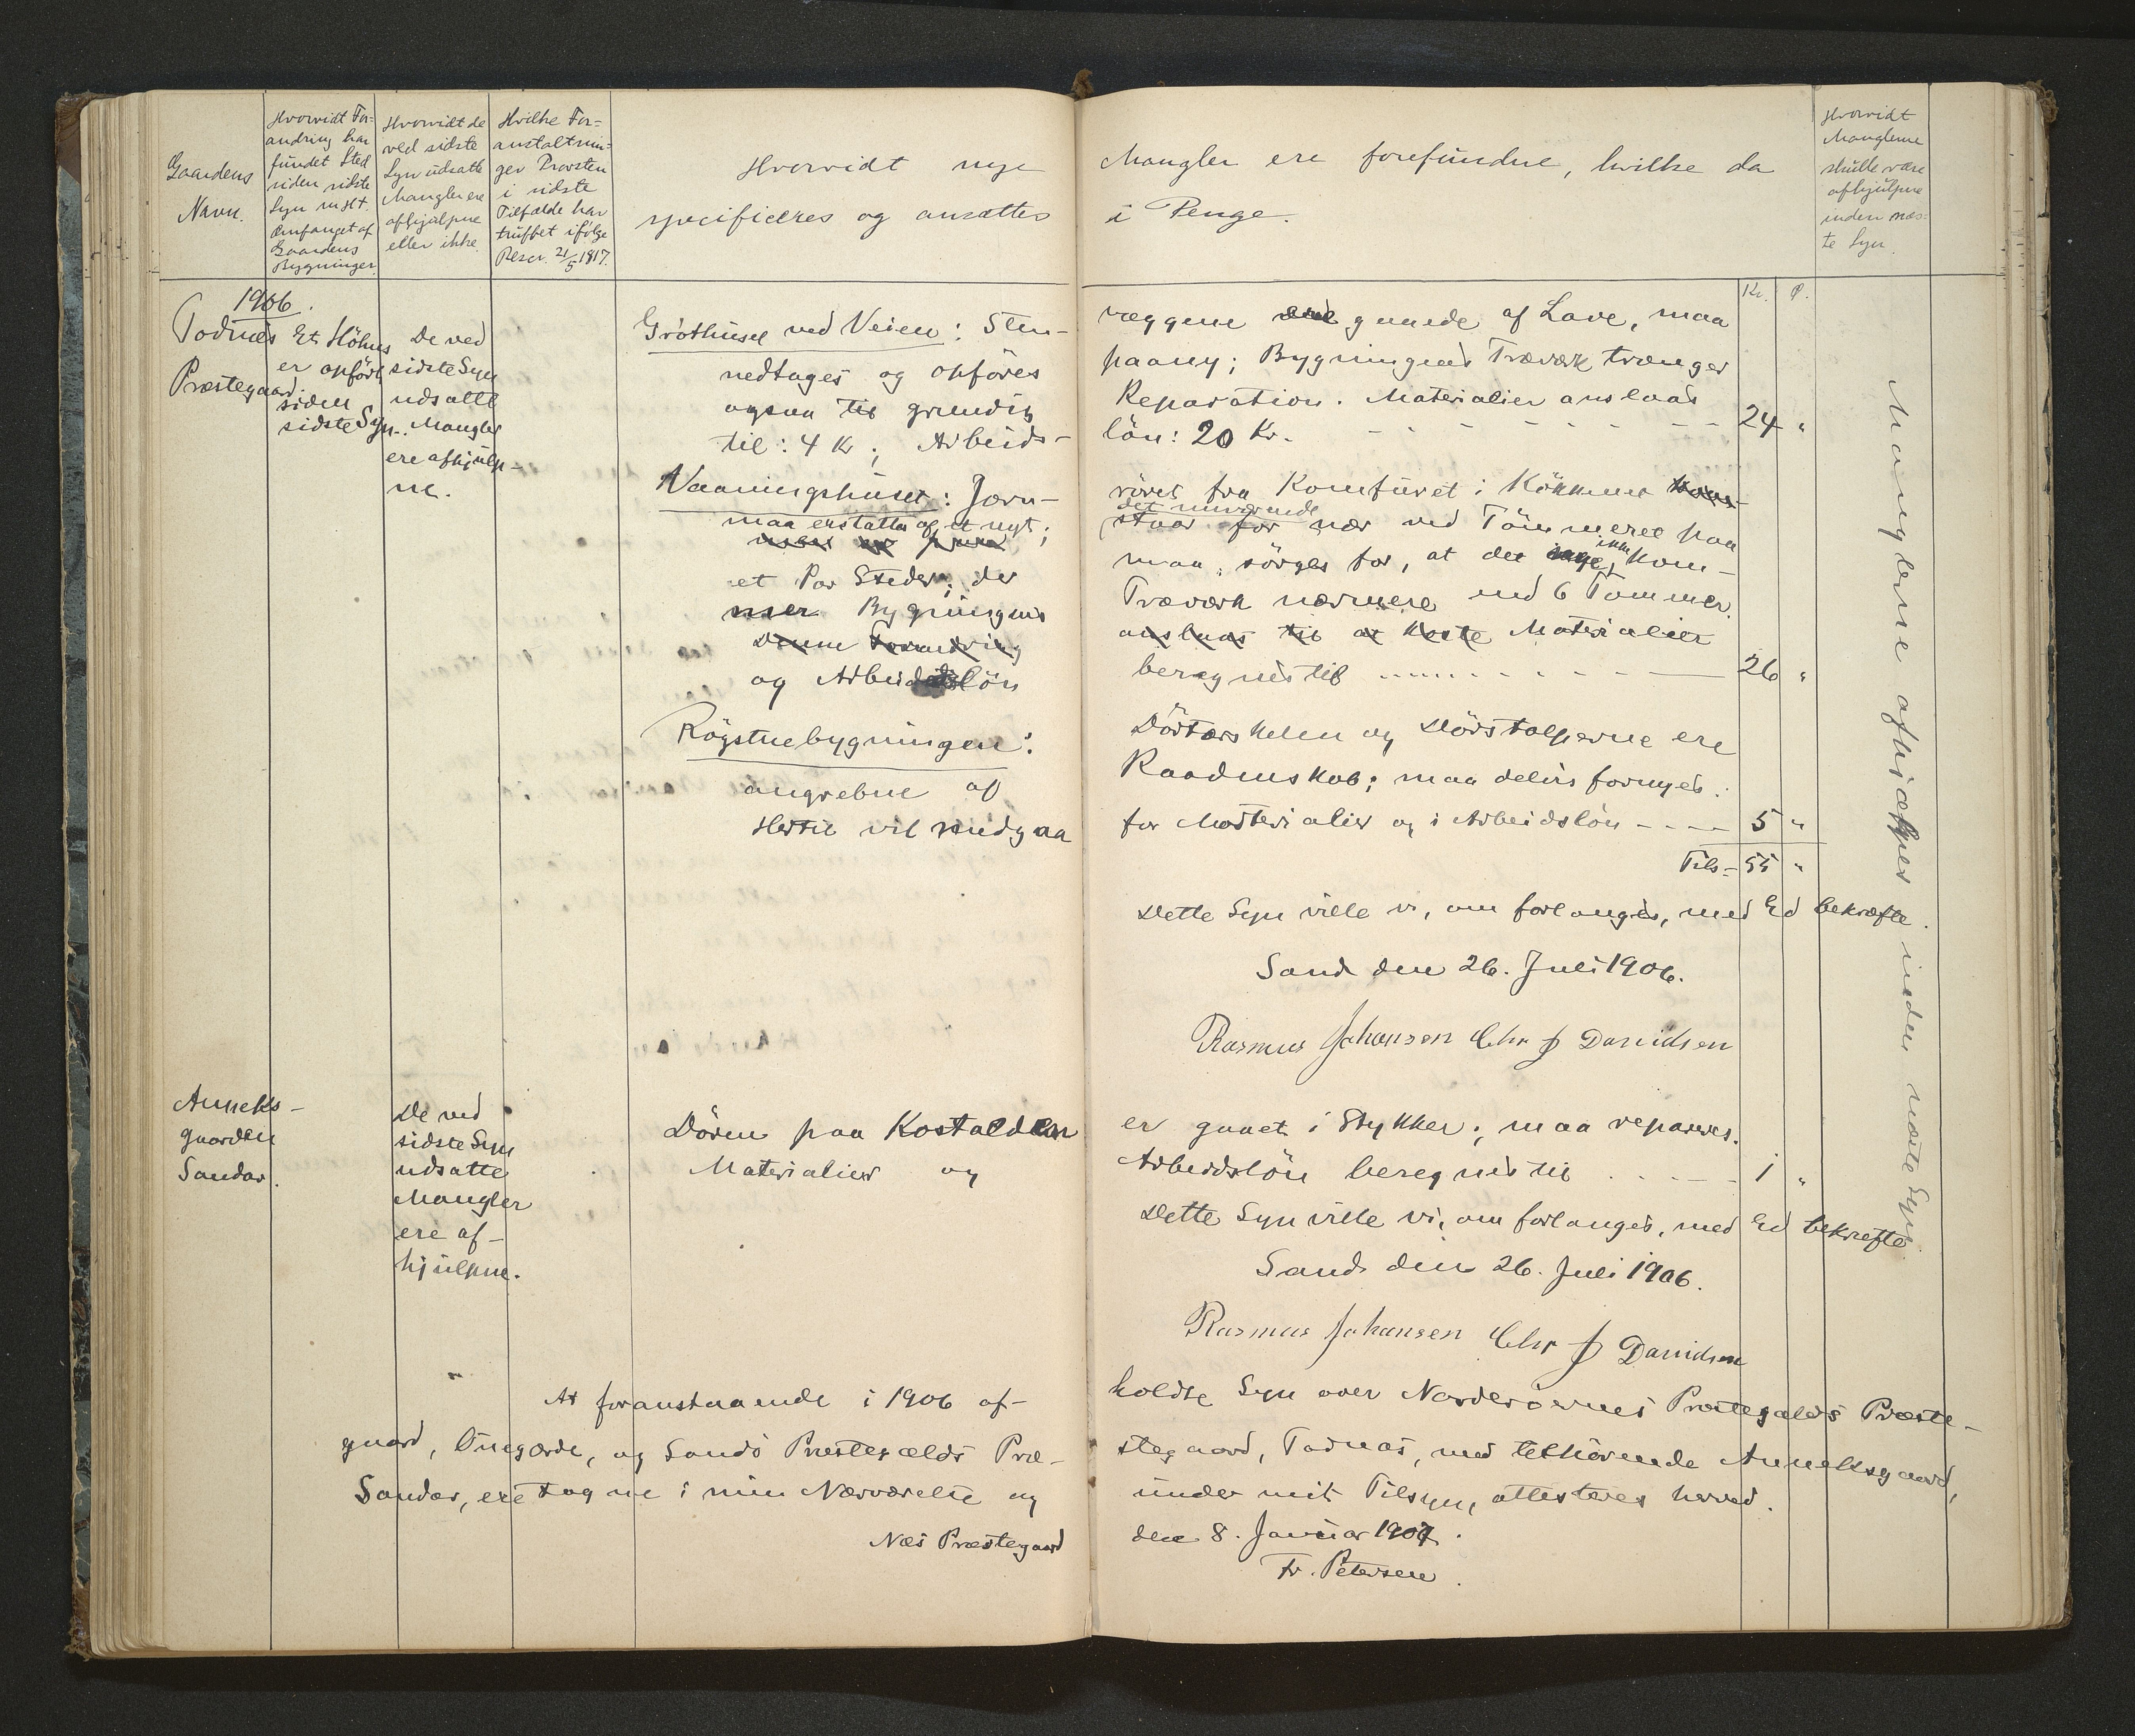 Gaardens
Navn.
Hvorvidt For=
andring har
fundet Sted
siden sidste
Syn m. H. t.
Omfanget af
Gaardens
Bygninger.
Hvorvidt de
ved sidste
Syn udsatte
Mangler ere
afhjulpne
eller ikke.
Hvilke For=
anstaltnin=
ger Provsten
i sidste
Tilfælde har
truffet ifølge
Rescr. 21/5 1817.
Hvorvidt nye Mangler ere forefundne, hvilke da
specificeres og ansættes i Penge.
Hvorvidt
Manglerne
skulle være
afhjulpne
inden næs-
te Syn.
Kr. Ø.
1906.
Todnæs
Præstegaard.
Et Höhus
er opfört
siden
sidste Syn.
De ved
sidste Syn
udsatte
Mangler
ere afhjulp-
ne.
Gróthúsel ved Veien: Sten- væggene ere gunede af Lave, maa
nedtages og opföres paany; Bygningens Træværk trænger
ogsaa til grundig Reparation. Materialier anslaas
til: 4 Kr; Arbeids- lön: 20 Kr. 24 "
Vaaningshuset: Jern- röret fra Komfuret i Kökkenet
maa erstattes af et nyt; det nuværende
staar for nær ved Tömmeret paa
et Par Steder; der maa sörges for, at det ikke kom-
mer Bygningens Træværk nærmere end 6 Tommer.
Denne Forandring anslaas til at koste Materialier
og Arbeidslön beregnes til 26 "
Rögstuebygningen: Dörtærskelen og Dörstolperne ere
angrebne af Raaddenskab; maa delvis fornyes.
Hertil vil medgaa for Materialier og i Arbeidslön 5 "
Tils- 55 "
Dette Syn ville vi, om forlanges, med Ed bekræfte.
Sand den 26. Juli 1906.
Rasmus Johansen Chr J Davidsen
Manglerne afhjælpes inden næste Syn.
Anneks-
gaarden
Sandar.
De ved
sidste Syn
udsatte
Mangler
ere af-
hjulpne.
Dören paa Kostalden er gaaet i Stykker; maa repareres.
Materialier og Arbeidslön beregnes til 1 "
Dette Syn ville vi, om forlanges, med Ed bekræfte.
Sand den 26. Juli 1906.
Rasmus Johansen Chr J Davidsen
At foranstaaende i 1906 af- holdte Syn over Norderöernes Præstegælds Præste-
gaard, Ónagærde, og Sandö Præstegælds Præ- stegaard, Todnæs, med tilhörende Anneksgaard,
Sandar, ere tagne i min Nærværelse og under mit Tilsyn, attesteres herved.
Næs Præstegaard den 8. Januar 1907.
Fr. Petersen.